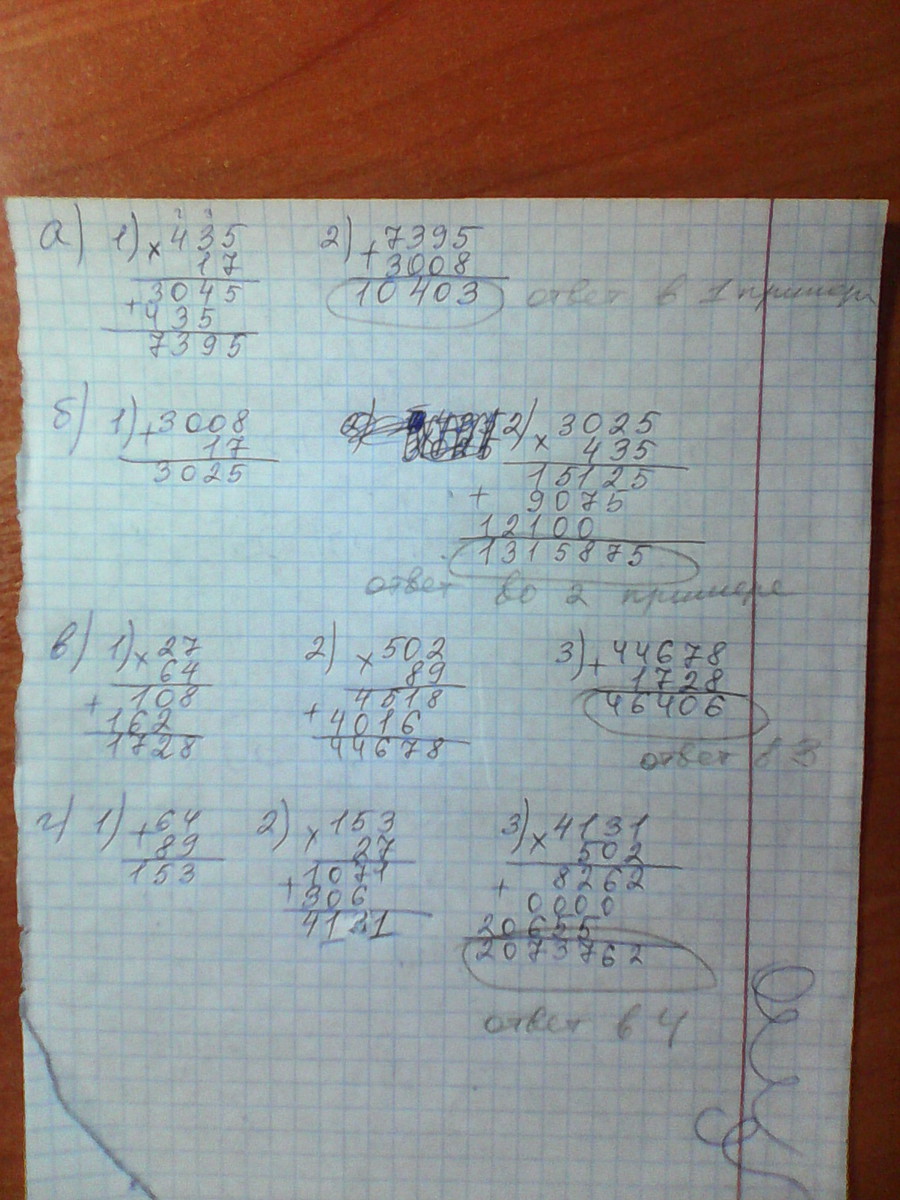 а) 1) × 435 2) + 7395
17 3008
3045 10403 ответ в 1 примере
+ 435
7395
б) 1) + 3008 2) × 3025
17 435
3025 15125
+ 9075
12100
1315875
ответ во 2 примере
в) 1) × 27 2) × 502 3) + 44678
64 89 1728
+ 108 4518 46406
162 + 4016 ответ в 3
1728 44678
г) 1) + 64 2) × 153 3) × 4131
89 27 502
153 1071 + 8262
+ 306 0000
4131 20655
2073762
ответ в 4